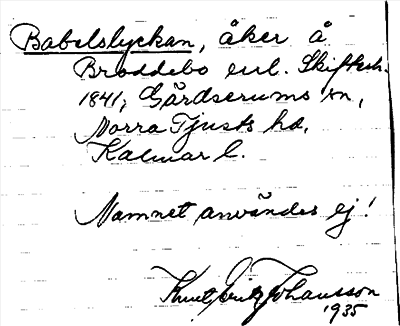 Babelslyckan, åker å
Broddebo enl. Skifteh.
1841, Gärdserums sn,
Norra Tjusts hd,
Kalmar l.
Namnet användes ej!
Knut Johansson
1935